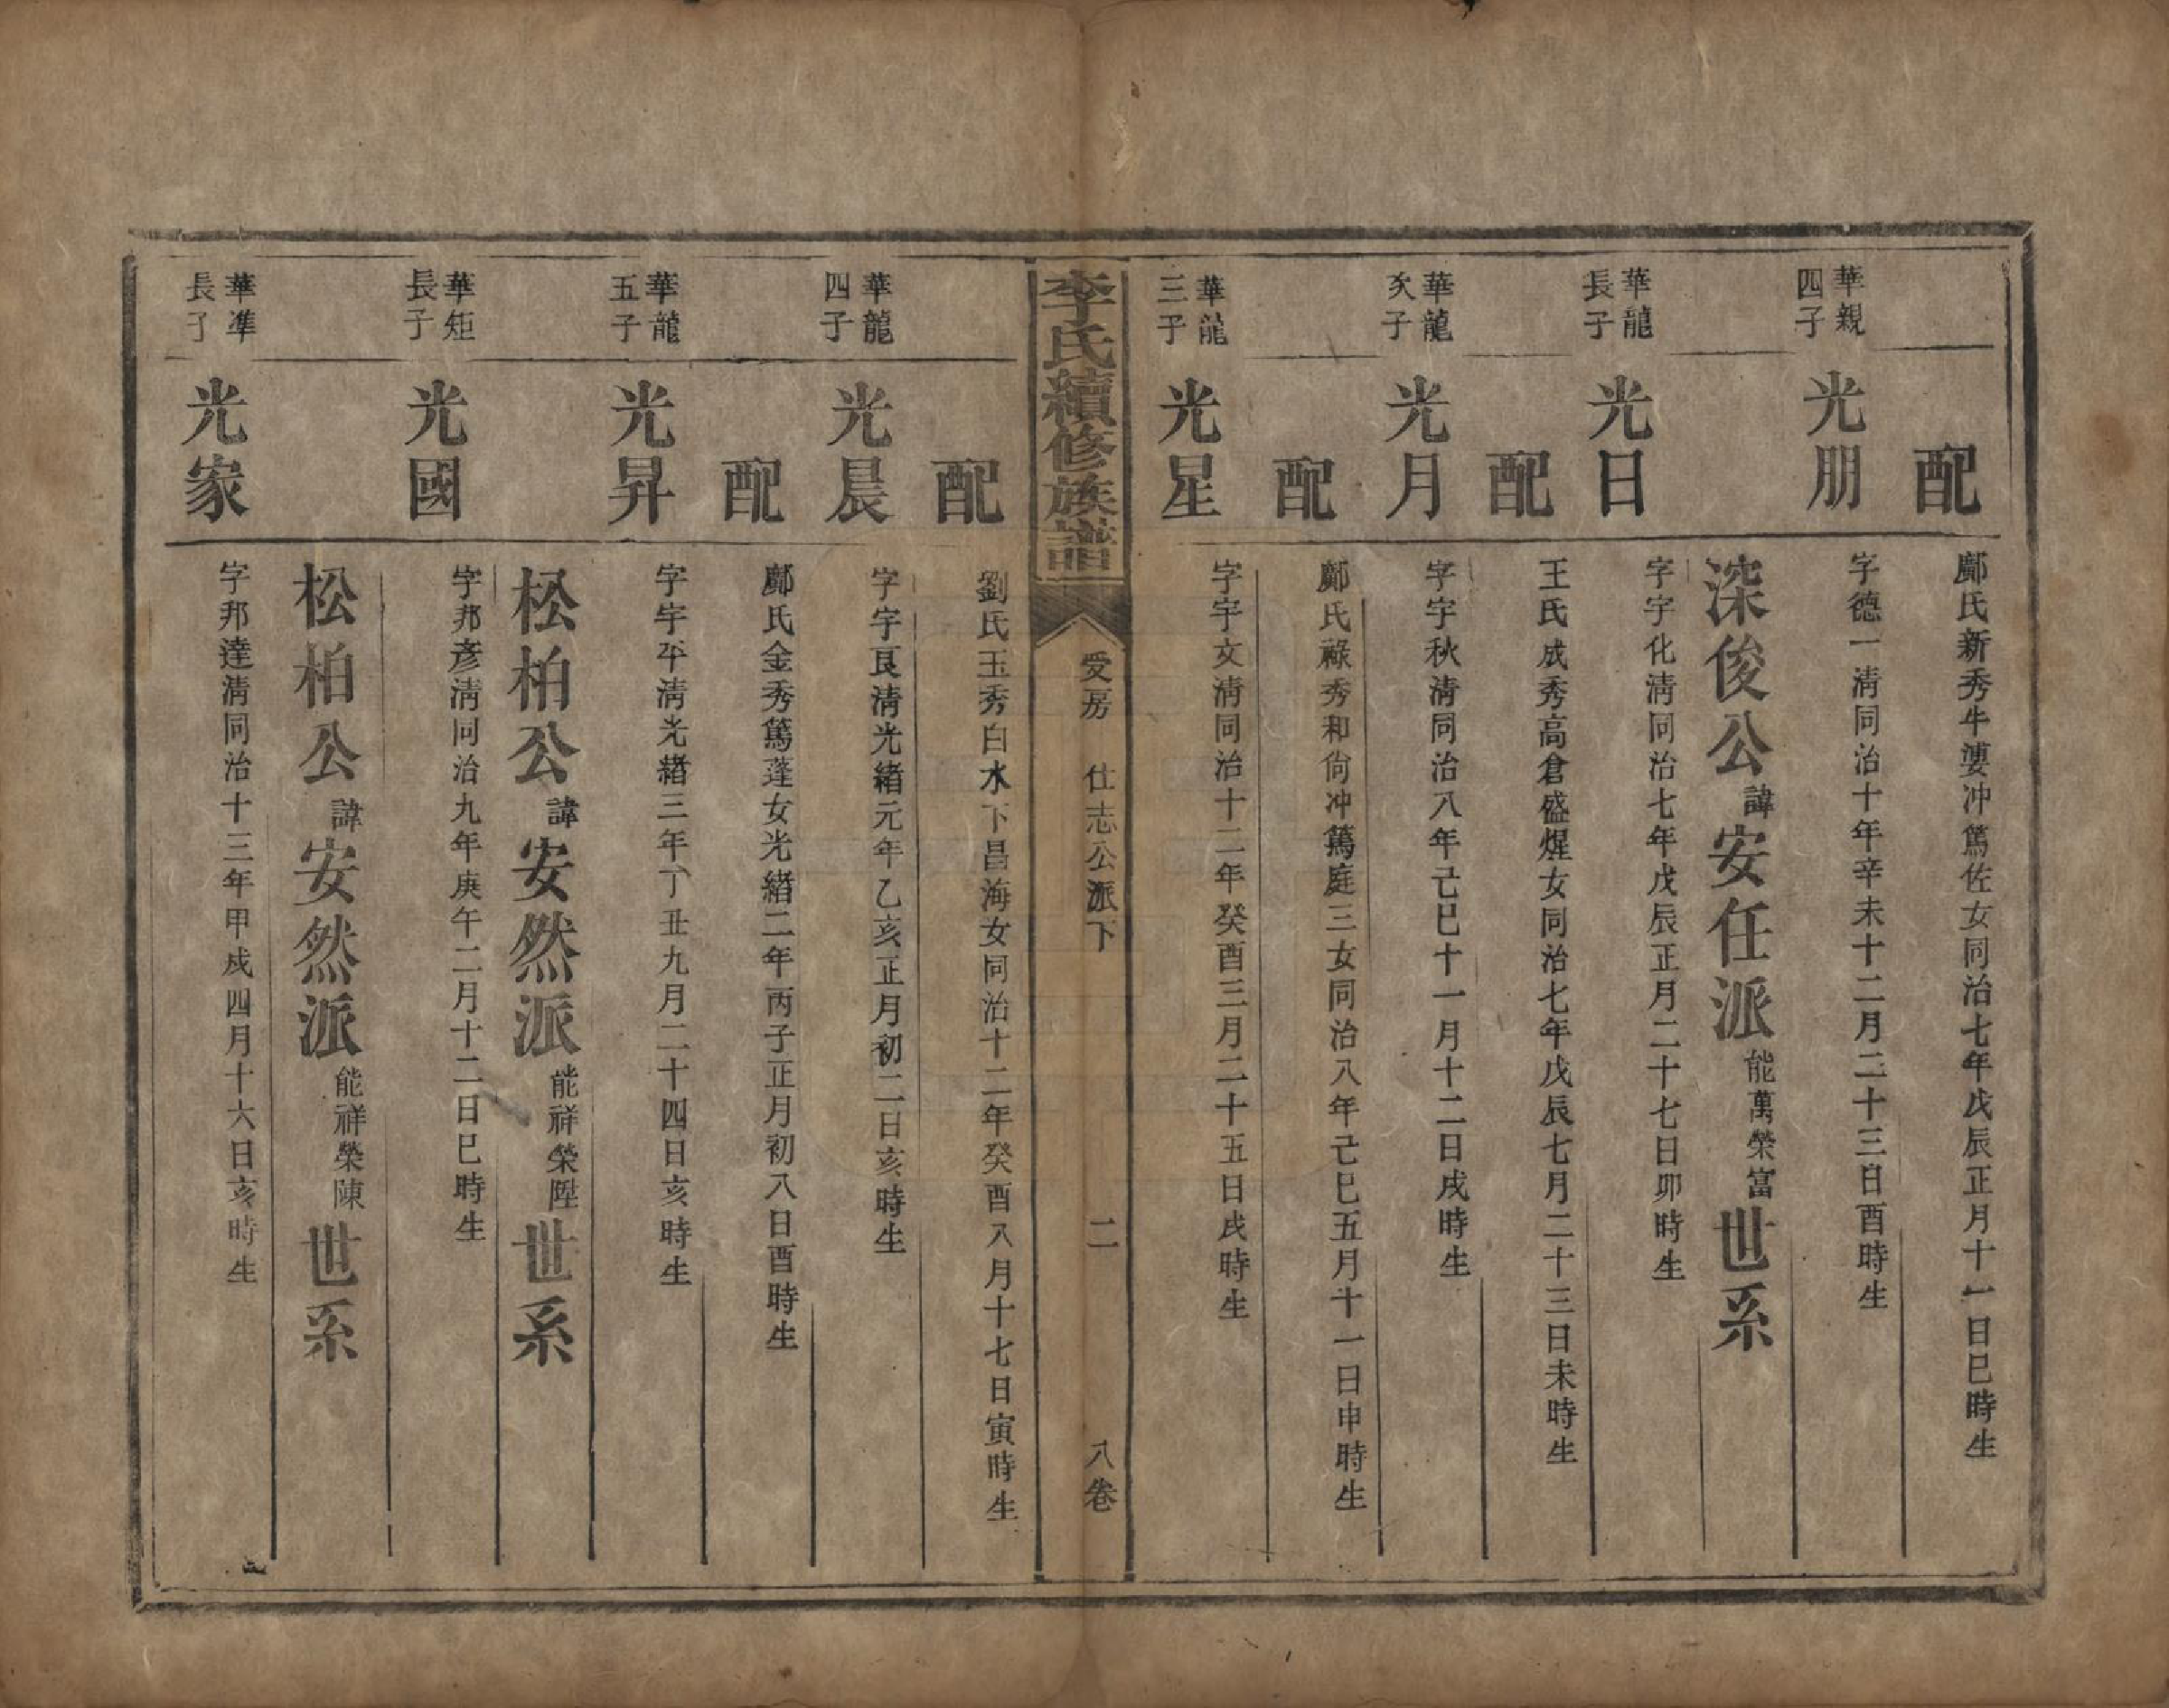 配
鄺氏新秀牛婁冲篤佐女同治七年戊辰正月十一日巳時生
華親四子
光朋
字德一清同治十年辛未十二月二十三日酉時生
深俊公諱安任派能萬榮富世系
華龍長子
光日
字宇化清同治七年戊辰正月二十七日卯時生
配
王氏成秀高倉盛煋女同治七年戊辰七月二十三日未時生
華龍次子
光月
字宇秋清同治八年己巳十一月十二日戌時生
配
鄺氏祿秀和尙冲篤庭三女同治八年己巳五月十一日申時生
華龍三子
光星
字宇文清同治十二年癸酉三月二十五日戌時生
李氏續修族譜
受房 仕志公派下 二 八卷
配
劉氏玉秀白水下昌海女同治十二年癸酉八月十七日寅時生
華龍四子
光晨
字宇良清光緒元年乙亥正月初二日亥時生
配
鄺氏金秀篤蓬女光緒二年丙子正月初八日酉時生
華龍五子
光昇
字宇平清光緒三年丁丑九月二十四日亥時生
松柏公諱安然派能祥榮陞世系
華矩長子
光國
字邦彥清同治九年庚午二月十二日巳時生
松柏公諱安然派能祥榮陳世系
華準長子
光家
字邦達清同治十三年甲戌四月十六日亥時生